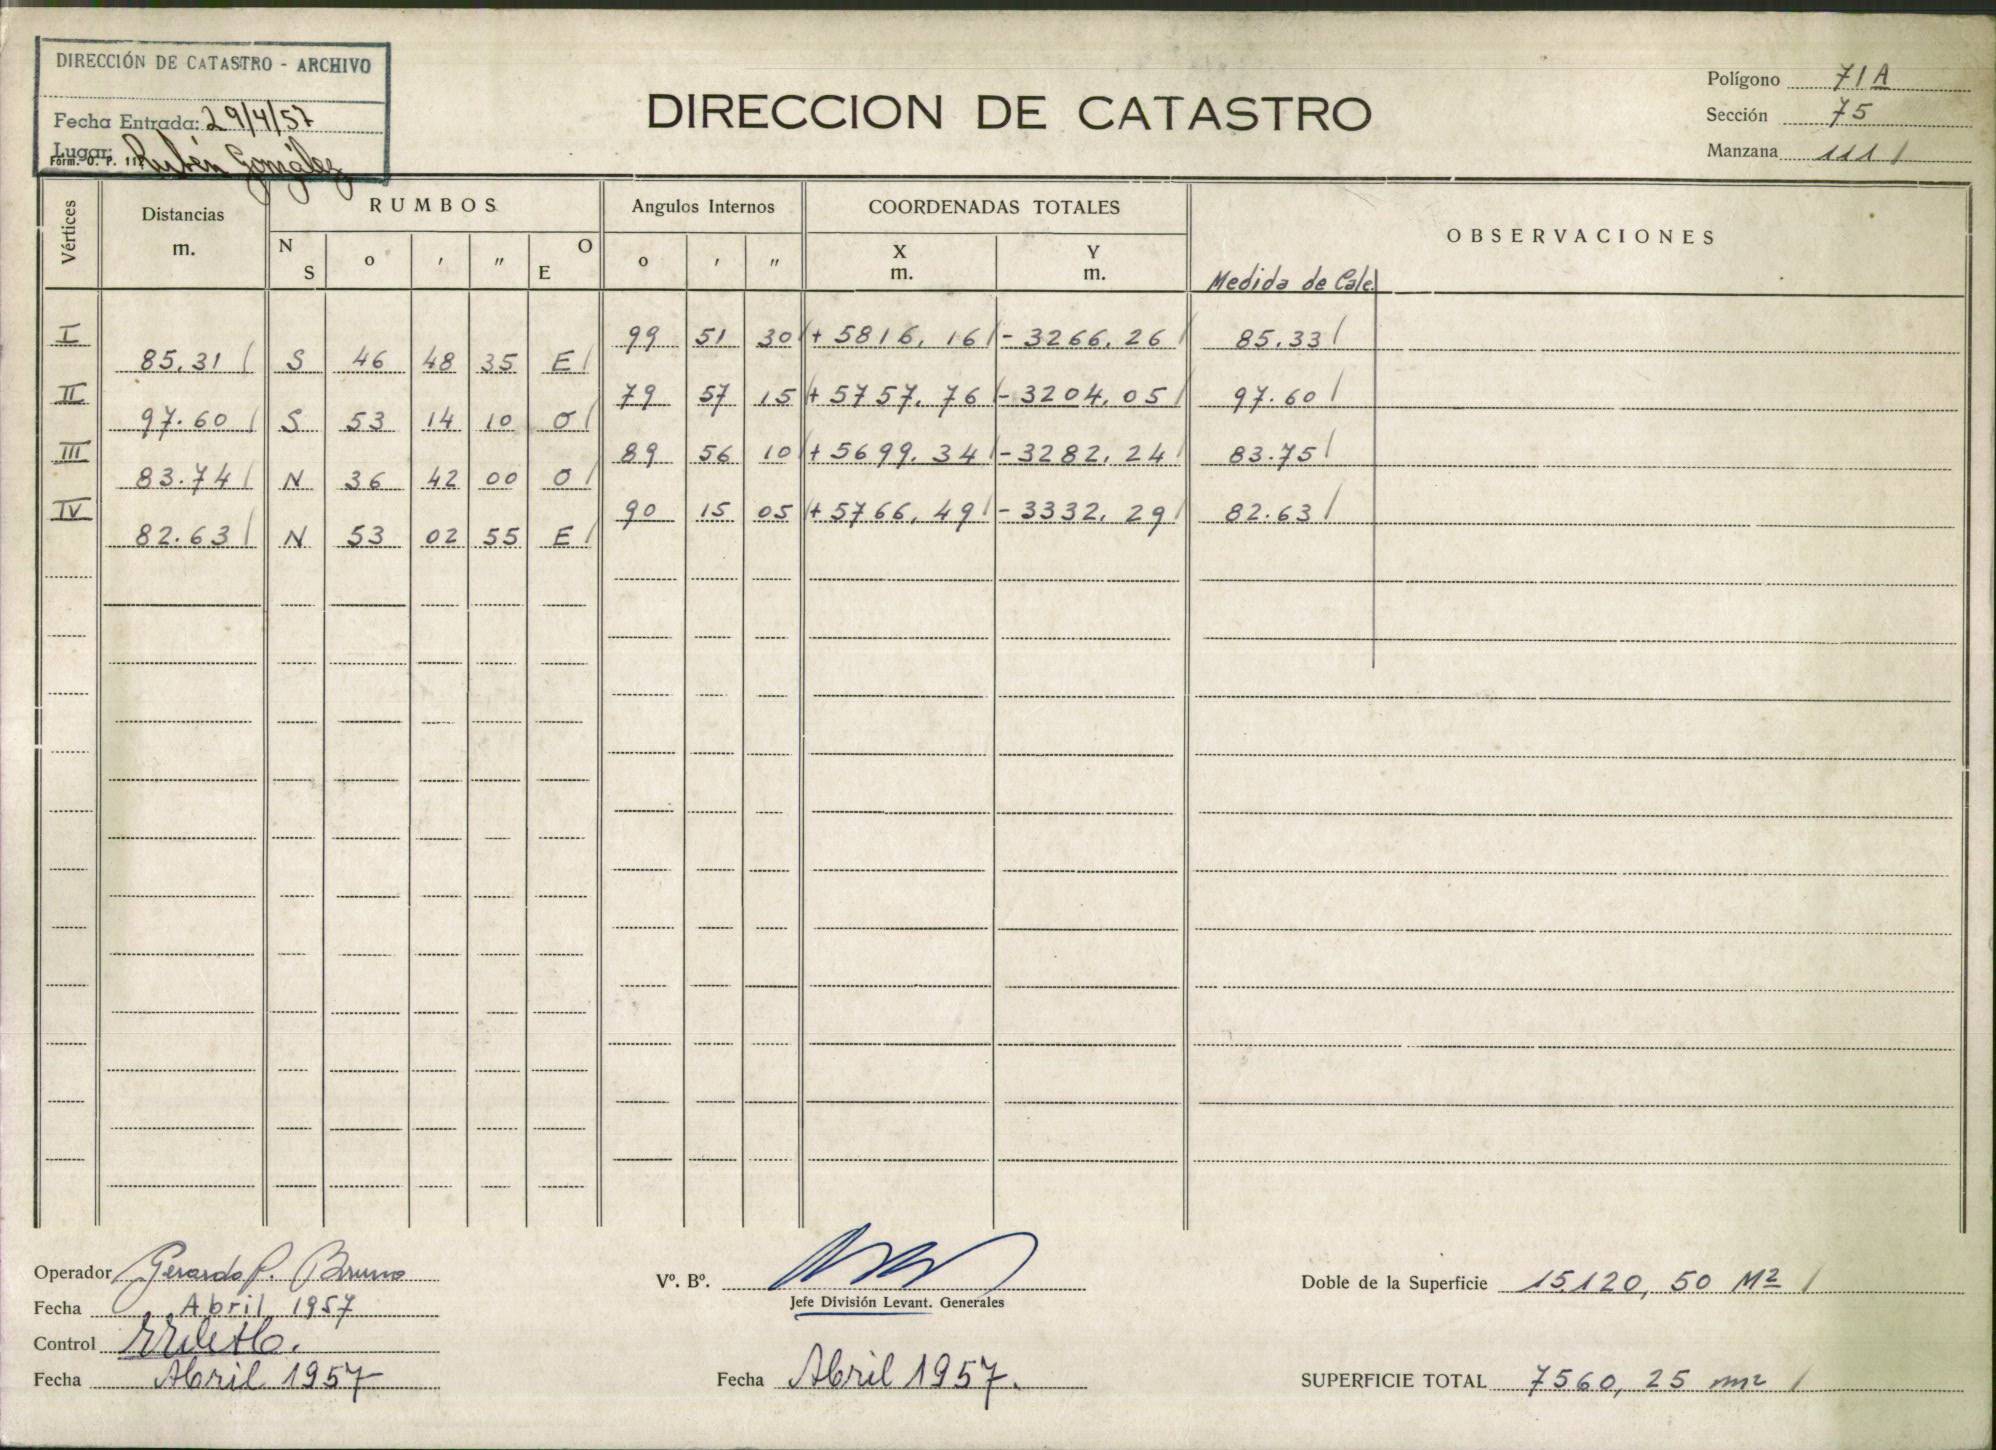 DIRECCIÓN DE CATASTRO - ARCHIVO
Fecha Entrada: 29/4/57
Lugar: Rubén González
Form. O. P. 11
DIRECCION DE CATASTRO
Polígono 71A
Sección 75
Manzana 111 /
Vértices
Distancias
m.
RUMBOS
N S
o
'
"
O E
Angulos Internos
o
'
"
COORDENADAS TOTALES
X
m.
Y
m.
OBSERVACIONES
Medida de Calc.
I 99 51 30 + 5816,16 - 3266,26 85.33
85.31 S 46 48 35 E
II 79 57 15 + 5757,76 - 3204,05 97.60
97.60 S 53 14 10 O
III 89 56 10 + 5699,34 - 3282,24 83.75
83.74 N 36 42 00 O
IV 90 15 05 + 5766,49 - 3332,29 82.63
82.63 N 53 02 55 E
Operador Gerardo P. Bruno
Fecha Abril 1957
Control
Fecha Abril 1957
Vº. Bº.
Jefe División Levant. Generales
Fecha Abril 1957.
Doble de la Superficie 15.120,50 M²
SUPERFICIE TOTAL 7560,25 m²